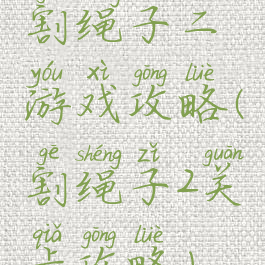 割绳子二
yóu xì gōng lüè
游戏攻略(
gē shéng zǐ guān
割绳子2关
qiǎ gōng lüè
卡攻略)